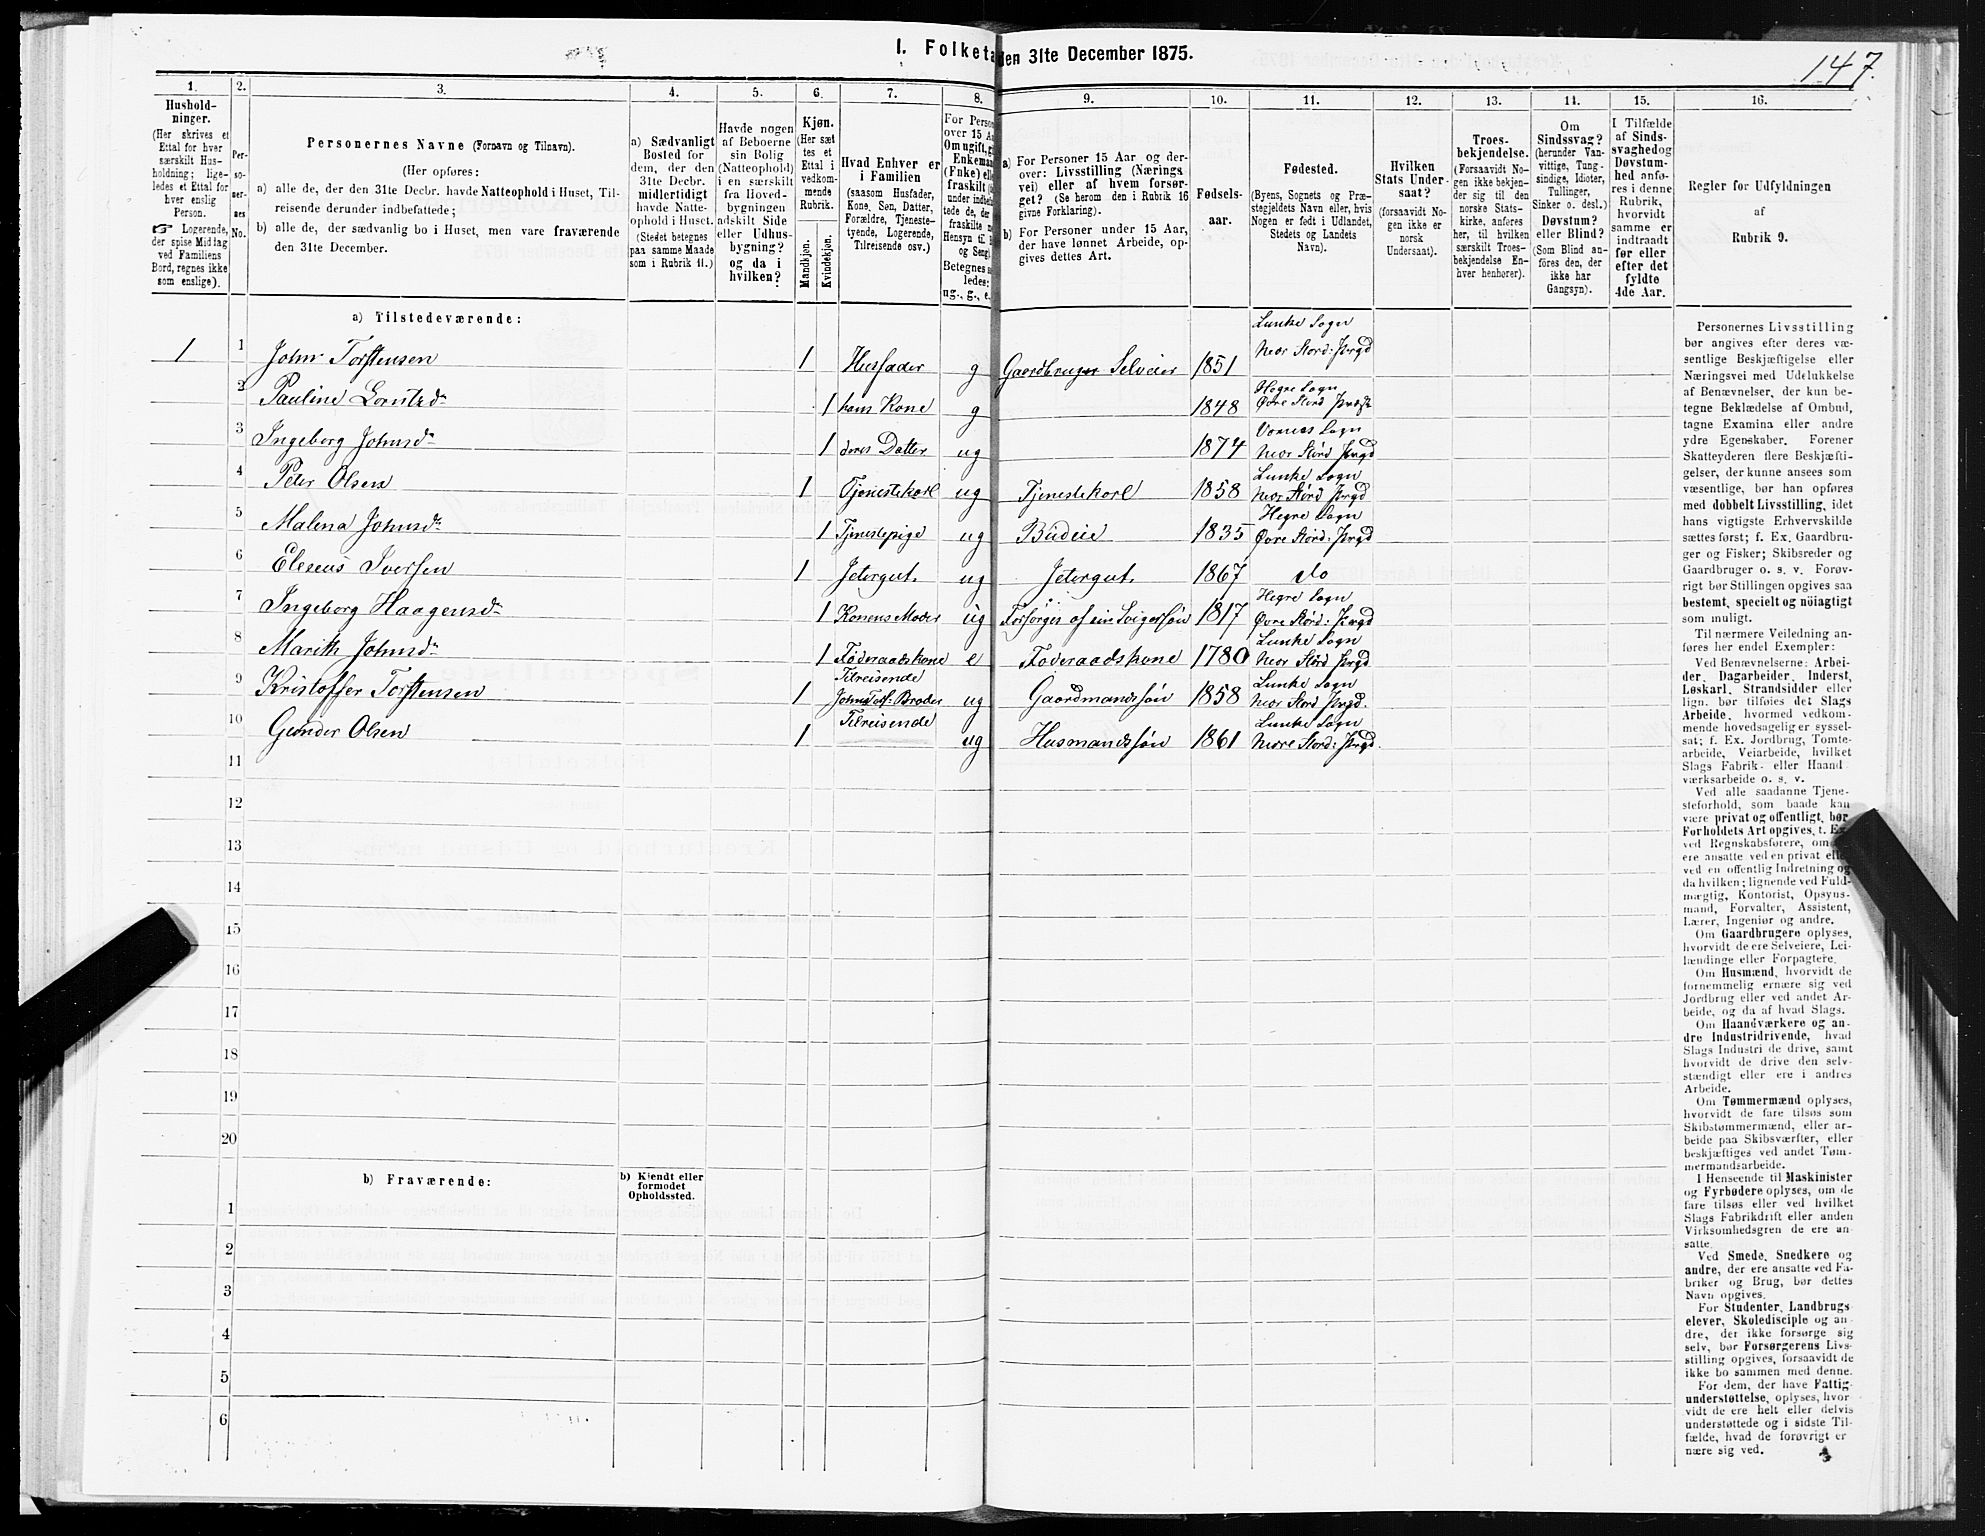 I. Folketa den 31te December 1875.
147.
1.
2.
3.
4.
5.
6.
7.
8.
9.
10.
11.
12.
13.
14.
15.
16.
Hushold-
ninger.
(Her skrives et
Ettal for hver
særskilt Hus-
holdning; lige-
ledes et Ettal for
hver enslig
Person.
☞ Logerende,
der spise Middag
ved Familiens
Bord, regnes ikke
som enslige).
Per-
so-
ner-
nes
No.
Personernes Navne (Fornavn og Tilnavn).
(Her opføres:
a) alle de, der den 31te Decbr. havde Natteophold i Huset, Til-
reisende derunder indbefattede;
b) alle de, der sædvanlig bo i Huset, men vare fraværende
den 31te December.
a) Sædvanligt
Bosted for
dem, der den
31te Decbr.
midlertidigt
havde Natte-
ophold i Huset.
(Stedet betegnes
paa samme Maade
som i Rubrik 11.)
Havde nogen
af Beboerne
sin Bolig
(Natteophold)
i en særskilt
fra Hoved-
bygningen
adskilt Side
eller Udhus-
bygning?
og da i
hvilken?
Kjøn.
(Her sæt
tes et
Ettal i
vedkom-
mende
Rubrik.
Mandkjøn.
Kvindekjøn.
Hvad Enhver er
i Familien
(saasom Husfader,
Kone, Søn, Datter,
Forældre, Tjeneste-
tyende, Logerende,
Tilreisende osv.)
For Person
over 15 A
Om ugift, g
Enkeman
(Fnke) ell
fraskilt (i
under indbefa
tede de, der
fraskilte
Hensyn til
og Seng)
Betegnes
ledes:
ug., g., e.
a) For Personer 15 Aar og der-
over: Livsstilling (Nærings
vei) eller af hvem forsør-
get? (Se herom den i Rubrik 16
givne Forklaring).
b) For Personer under 15 Aar,
der have lønnet Arbeide, op-
gives dettes Art.
Fødsels-
aar.
Fødested.
(Byens, Sognets og Præ-
stegjeldets Navn eller, hvis
Nogen er født i Udlandet,
Stedets og Landets
Navn).
Hvilken
Stats Under-
saat?
(forsaavidt No-
gen ikke er
norsk
Undersaat).
Troes-
bekjendelse.
(Forsaavidt No-
gen ikke bekjen-
der sig til den
norske Stats-
kirke, anføres
her, til hvilken
særskilt Troes-
bekjendelse En-
hver henhører).
Om
Sindssvag?
(herunder Van-
vittige, Tung-
sindige, Idioter,
Tullinger,
Sinker o. desl.)
Døvstum?
eller Blind?
(Som Blind an-
føres den, der
ikke har
Gangsyn).
I Tilfælde
af Sinds-
svaghed og
Døvstum-
hed anfø-
res i denne
Rubrik,
hvorvidt
samme er
indtraadt
før eller
efter det
fyldte
4de Aar.
Regler for Udfyldningen
af
Rubrik 9.
a) Tilstedeværende:
1 1 John Torstensen 1 Husfader g Gaardbruger Selveier 1851 Lunke Sogn Neor Stord: Prgd
2 Pauline Lorntzdr 1 hans Kone g 1848 Hegre Sogn Øvre Stord Præst
3 Ingeborg Johnsdr 1 deres Datter ug 1874 Vornes Sogn Neor Stord Prgd
4 Peter Olsen 1 Tjenestekarl ug Tjenestekarl 1858 Lunke Sogn Neor Stord Prgd
5 Malena Johnsdr 1 Tjenestepige ug Budeie 1835 Hegre Sogn Øvre Stord: Prgd
6 Eleseus Iversen 1 Jetergut. ug Jetergut. 1867 do
7 Ingeborg Haagensdr 1 Konens Moder ug Forsørges af sin Svigersøn 1817 Hegre Sogn Øvre Stord: Prgd
8 Marith Johnsdr 1 Føderaadskone e Føderaadskone 1780 Lunke Sogn Neor Stord Prgd
9 Kristoffer Torstensen 1 Tilreisende Johns Tost: Broder ug Gaardmandssøn 1858 Lunke Sogn Neor Stord Prgd.
10 Gunder Olsen 1 Tilreisende ug Husmandssøn 1861 Lunke Sogn Nedre Stord: Prgd.
11
12
13
14
15
16
17
18
19
20
b) Fraværende:
b) Kjendt eller
formodet
Opholdssted.
1
2
3
4
5
6
Personernes Livsstilling
bør angives efter deres væ-
sentlige Beskjæftigelse eller
Næringsvei med Udelukkelse
af Benævnelser, der kun be-
tegne Beklædelse af Ombud,
tagne Examina eller andre
ydre Egenskaber. Forener
Skatteyderen flere Beskjæfti-
gelser, der kunne ansees som
væsentlige, bør han opføres
med dobbelt Livsstilling, idet
hans vigtigste Erhvervskilde
sættes først; f. Ex. Gaardbru-
ger og Fisker; Skibsreder og
Gaardbruger o. s. v. Forøv-
rigt bør Stillingen opgives saa
bestemt, specielt og nöiagtigt
som muligt.
Til nærmere Veiledning an-
føres her endel Exempler:
Ved Benævnelserne: Arbei-
der, Dagarbeider, Inderst,
Løskarl, Strandsidder eller
lign. bør tilføies det Slags
Arbeide, hvormed vedkom-
mende hovedsagelig er syssel-
sat; f. Ex. Jordbrug, Tomte-
arbeide, Veiarbeide, hvilket
Slags Fabrik- eller Haand
værksarbeide o. s. v.
Ved alle saadanne Tjene-
steforhold, som baade kan
være privat og offentligt, bør
Forholdets Art opgives, t. Ex.
ved Regnskabsførere, om
ere ansatte ved en privat eller
ved en offentlig Indretning og
da hvilken; lignende ved Fuld-
mægtig, Kontorist, Opsyns-
mand, Forvalter, Assistent,
Lærer, Ingeniør og andre.
Om Gaardbrugere oplyses,
hvorvidt de ere Selveiere, Lei-
lændinge eller Forpagtere.
Om Husmænd, hvorvidt de
fornemmelig ernære sig ved
Jordbrug eller ved andet Ar-
beide, og da af hvad Slags.
Om Haandværkere og an-
dre Industridrivende, hvad
Slags Industri de drive, samt
hvorvidt de drive den selv-
stændigt eller ere i andres
Arbeide.
Om Tømmermænd oplyses,
hvorvidt de fare tilsøs som
Skibstømmermænd, eller ar-
beide paa Skibsværfter, eller
beskjæftiges ved andet Tøm-
mermandsarbeide.
I Henseende til Maskinister
og Fyrbødere oplyses, om de
fare tilsøs eller ved hvilket
Slags Fabrikdrift eller anden
Virksomhedsgren de ere an-
satte.
Ved Smede, Snedkere og
andre, der ere ansatte ved Fa-
briker og Brug, bør dettes
Navn opgives.
For Studenter, Landbrugs
elever, Skoledisciple og an-
dre, der ikke forsørge sig
selv, bør Forsørgerens Livs-
stilling opgives, forsaavidt de
ikke bo sammen med denne.
For dem, der have Fattig-
understøttelse, oplyses, hvor-
vidt de ere helt eller delvis
understøttede og i sidste Til-
fælde, hvad de forøvrigt er
nære sig ved.